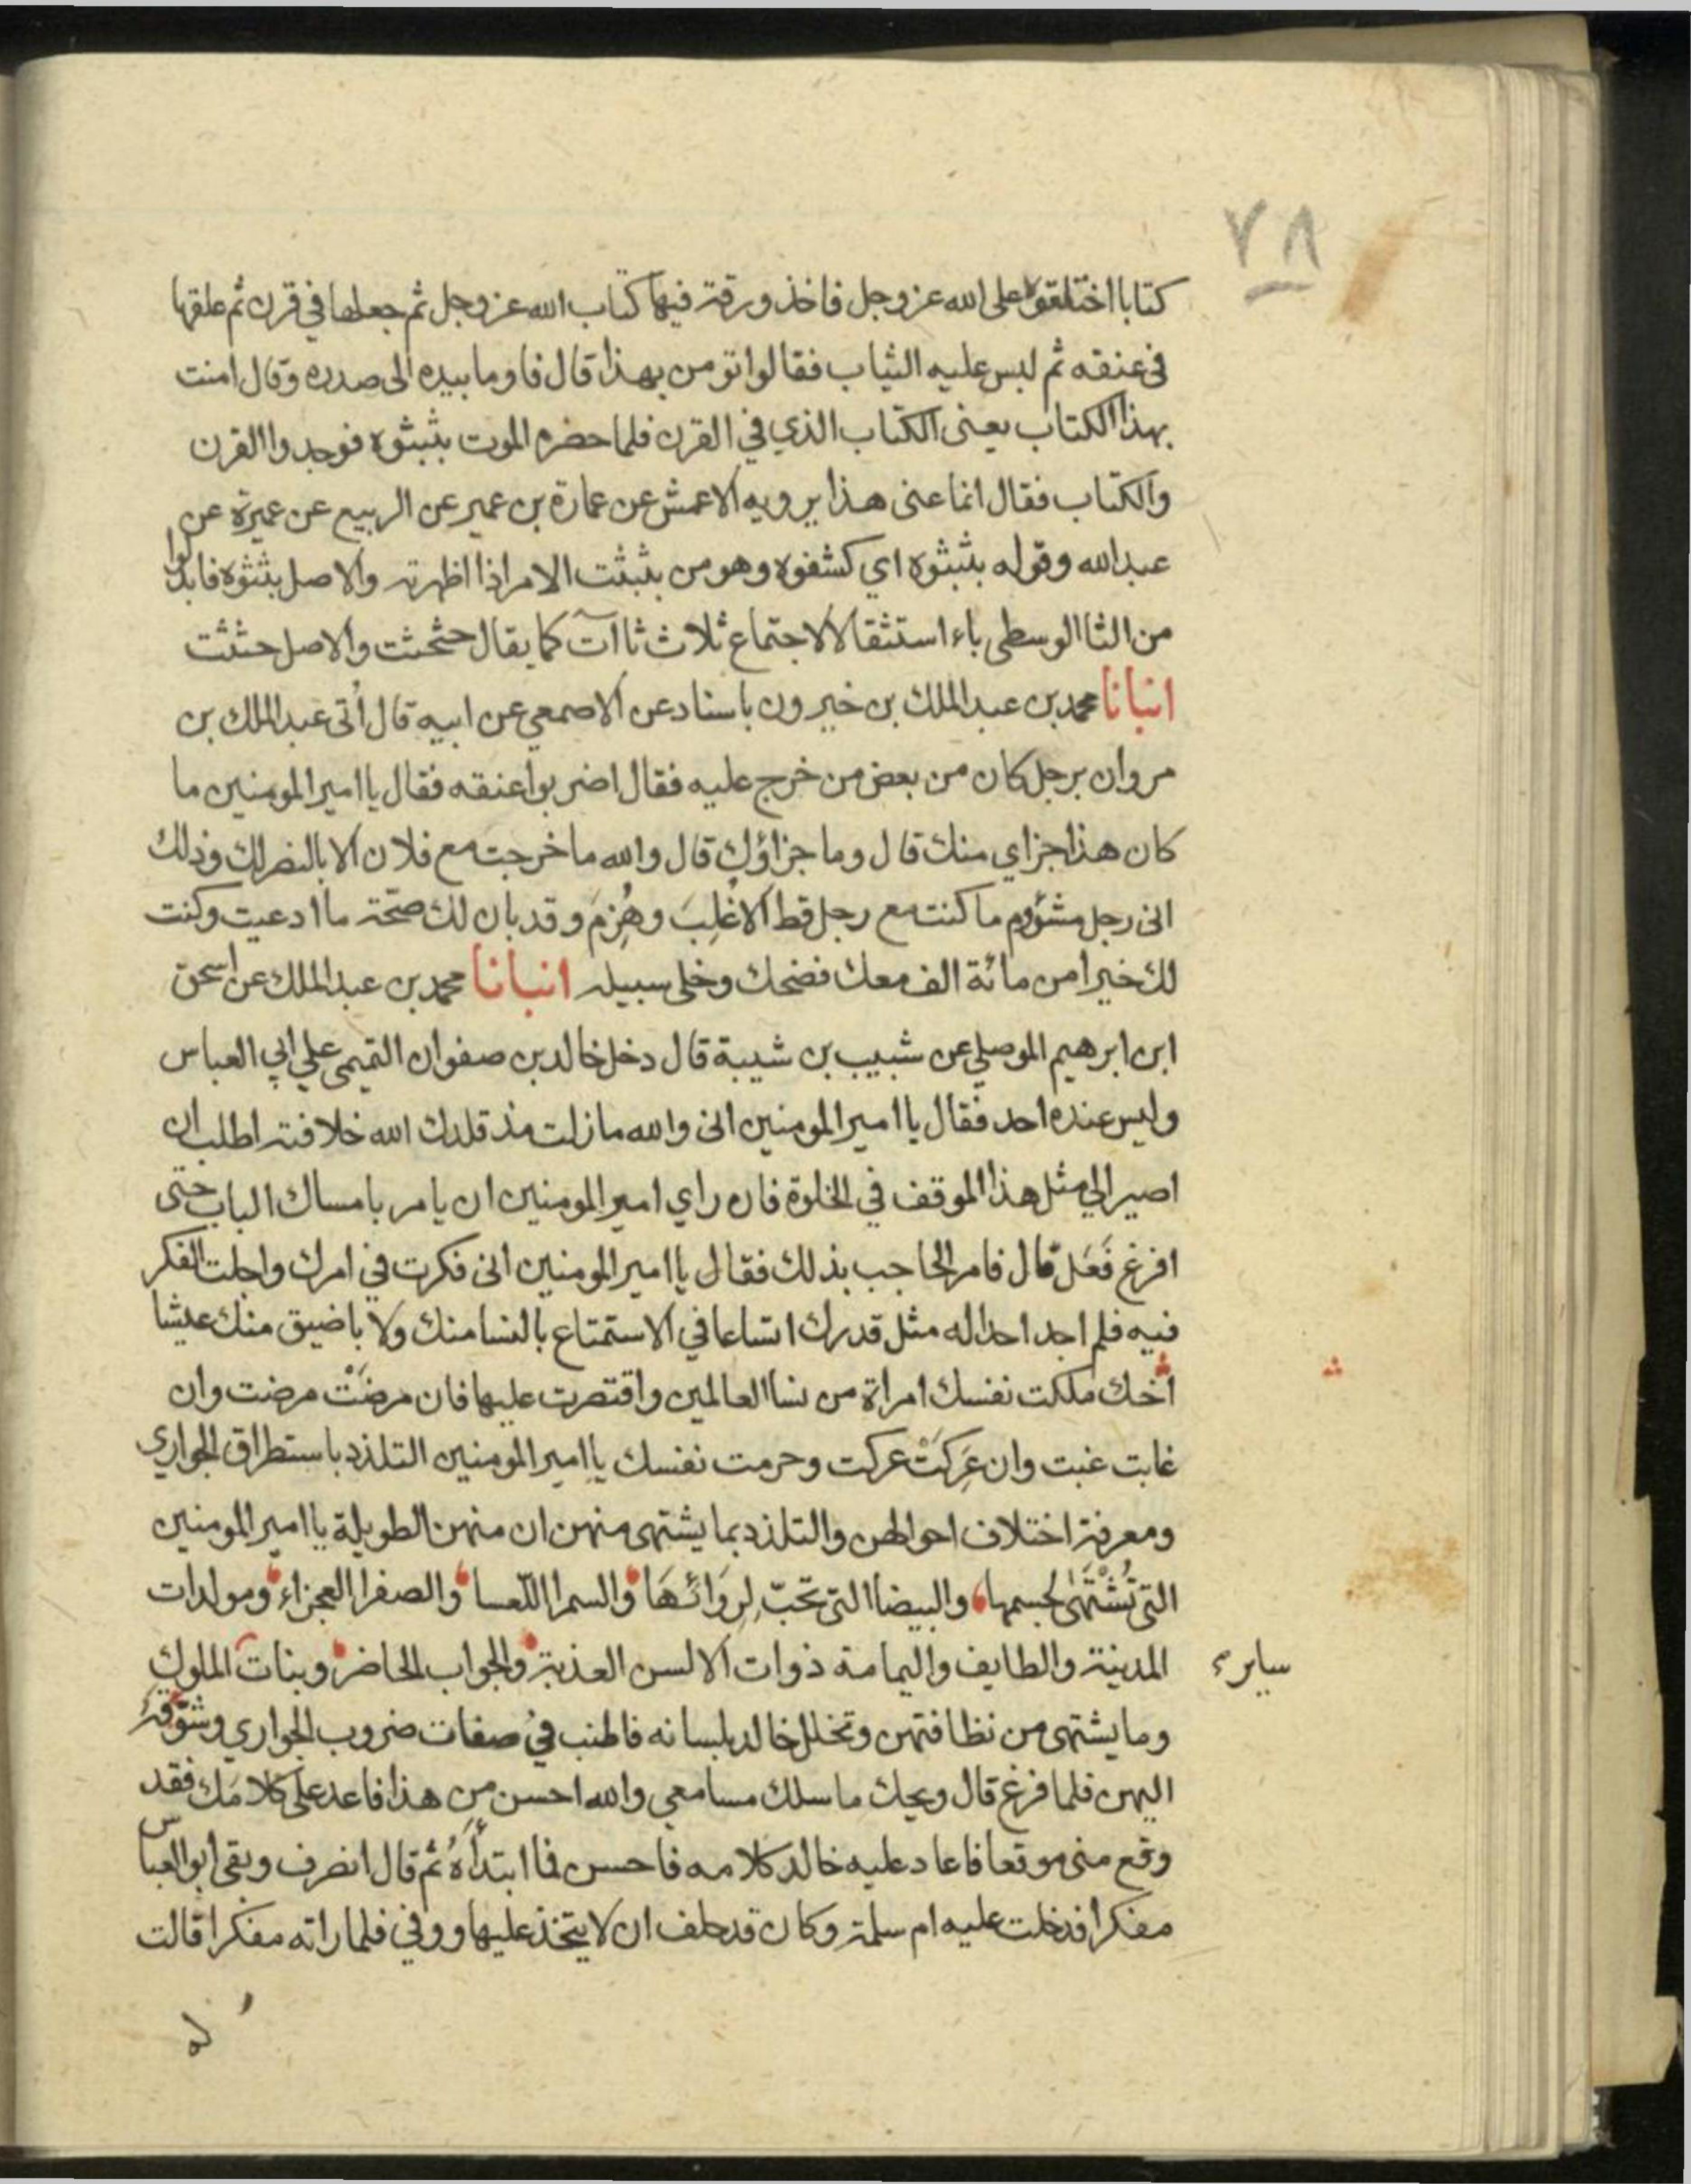 ٧٨
كتابا اختلقوه على الله عز وجل فاخذ ورقة فيها كتاب الله عز وجل ثم جعلها في قرن ثم علقها
في عنقه ثم لبس عليه الثياب فقالوا تومن بهذا قال فاوما بيده الى صدره وقال امنت
بهذا الكتاب يعنى الكتاب الذي في القرن فلما حضره الموت بثبثوه فوجدوا القرن
والكتاب فقال انما عنى هذا يرويه الاعمش عن عمارة بن عمير عن الربيع عن عميرة عن
عبد الله وقوله بثبثوه اي كشفوه وهو من بثبثت الامر اذا اظهرته والاصل بثثوه فابدلوا
من الثا الوسطى باء استثقالا لاجتماع ثلاث ثاآت كما يقال حثحثت والاصل حثثت
انبانا محمد بن عبد الملك بن خيرون باسناد عن الاصمعي عن ابيه قال أتى عبد الملك بن
مروان برجل كان من بعض من خرج عليه فقال اضربوا عنقه فقال يا امير المومنين ما
كان هذا جزاي منك قال وما جزاؤك قال والله ما خرجت مع فلان الا بالنصر لك وذلك
انى رجل مشؤم ما كنت مع رجل قط الا غُلِبَ وهُزِمَ وقد بان لك صحّة ما ادعيت وكنت
لك خيرا من مائة الف معك فضحك وخلى سبيله انبانا محمد بن عبد الملك عن اسحق
ابن ابرهيم الموصلي عن شبيب بن شيبة قال دخل خالد بن صفوان التميمي علي ابي العباس
وليس عنده احد فقال يا امير المومنين انى والله ما زلت منذ قلدك الله خلافته اطلب ان
اصير الي مثل هذا الموقف في الخلوة فان راي امير المومنين ان يامر بامساك الباب حتى
افرغ فَعَل قال فامر الحاجب بذلك فقال يا امير المومنين انى فكرت في امرك واجلت الفكر
فيه فلم اجد احدا له مثل قدرك اتساعا في الاستمتاع بالنسا منك ولا باضيق منك عيشا
انك ملكت نفسك امراة من نسا العالمين واقتصرت عليها فان مرضَتْ مرضت وان
غابت غبت وان عَرِكَتْ عركت وحرمت نفسك يا امير المومنين التلذذ باستطراق الجواري
ومعرفة اختلاف احوالهن والتلذذ بما يشتهى منهن ان منهن الطويلة يا امير المومنين
التى تُشْتَهٰى لجسمها والبيضا التى تحبّ لِرَوَائهَا والسمرا اللّعسا والصفرا العجزاء ومولدات
المدينة والطايف واليمامة ذوات الالسن العذبة والجواب الحاضر وبنات الملوك
ساير
وما يشتهى من نظافتهن وتخلل خالد بلسانه فاطنب في صفات ضروب الجواري وشوّقه
اليهن فلما فرغ قال ويحك ما سلك مسامعي والله احسن من هذا فاعد على كلامَك فقد
وقع منى موقعا فاعاد عليه خالد كلامه فاحسن مما ابتدأهُ ثم قال انصرف وبقى ابو العباس
مفكرا فدخلت عليه ام سلمة وكان قد حلف ان لا يتخذ عليها ووفى فلما راته مفكرا قالت
له